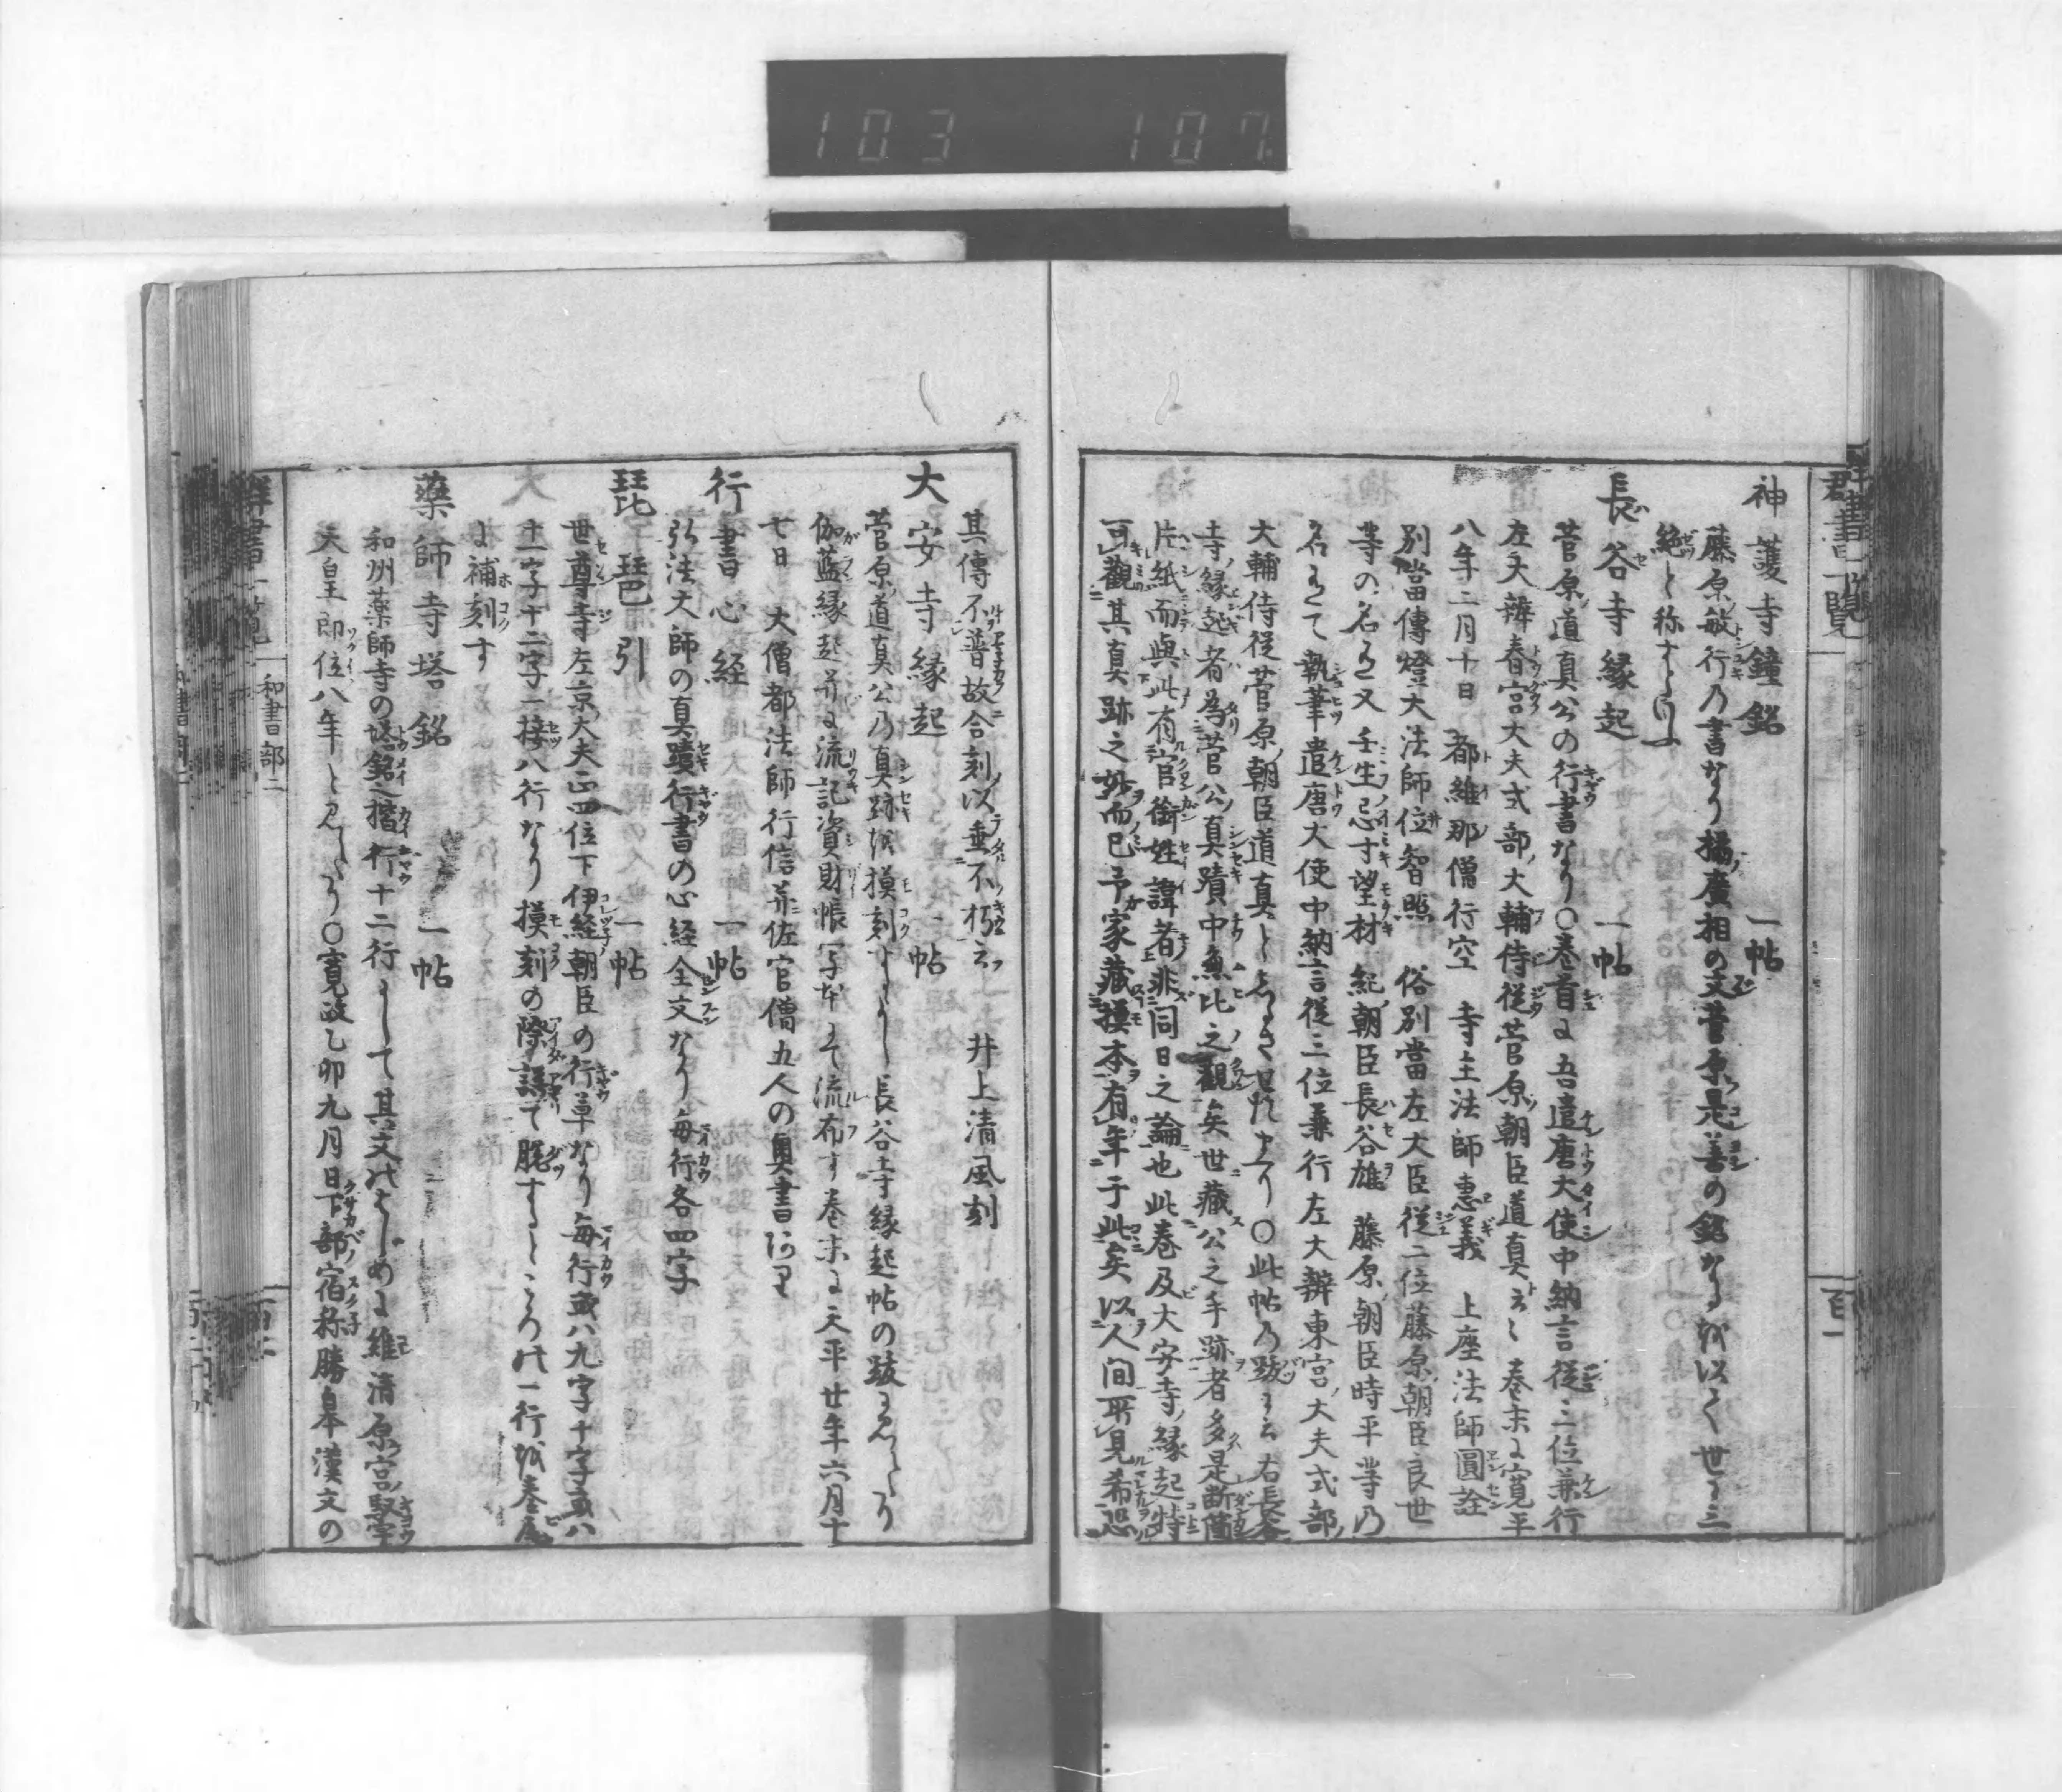 103 107
群書一覧
百一
神護寺鐘銘 一帖
藤原敏行の書なり橘廣相の文菅原是善の銘なるを以て世に三
絶と称す
長谷寺縁起 一帖
菅原道真公の行書なり〇巻首に吾遣唐大使中納言従三位兼行
左大辨春宮大夫式部大輔侍従菅原朝臣道真云々 巻末に寛平
八年二月十日 都維那僧行空 寺主法師惠義 上座法師圓詮
別當傳燈大法師位智照 俗別當左大臣従二位藤原朝臣良世
等の名あり又壬生忌寸望材 紀朝臣長谷雄 藤原朝臣時平等乃
名ありて執筆遣唐大使中納言従三位兼行左大辨東宮大夫式部
大輔侍従菅原朝臣道真としるされたり〇此帖の跋に云右長谷
寺縁起者為菅公真蹟中無比之觀矣世藏公之手跡者多是断簡
片紙而與此有官銜姓諱者非同日之論也此巻及大安寺縁起特
可觀其真跡之妙而已予家藏摸本有年于此矣以人間所見希恐
其傳不普故合刻以垂不朽云 井上清風刻
大安寺縁起 一帖
菅原道真公乃真跡を摸刻すよし長谷寺縁起帖の跋に見えたり
伽藍縁起并に流記資財帳写本にて流布す巻末に天平廿年六月十
七日 大僧都法師行信并佐官僧五人の奥書あり
行書心経 一帖
弘法大師の真蹟行書の心経全文なり毎行各四字
琵琶引 一帖
世尊寺左京大夫正四位下伊経朝臣の行草なり毎行或八九字十字或八
十一字十二字一接八行なり摸刻の際誤て脱するところの一行を巻尾
に補刻す
藥師寺塔銘 一帖
和州藥師寺の塔銘之搨行十二行にして其文のはじめに維清原宮馭宇
天皇即位八年と見えたり〇寛政乙卯九月日下部宿祢勝皐本漢文の
群書一覧
和書部二